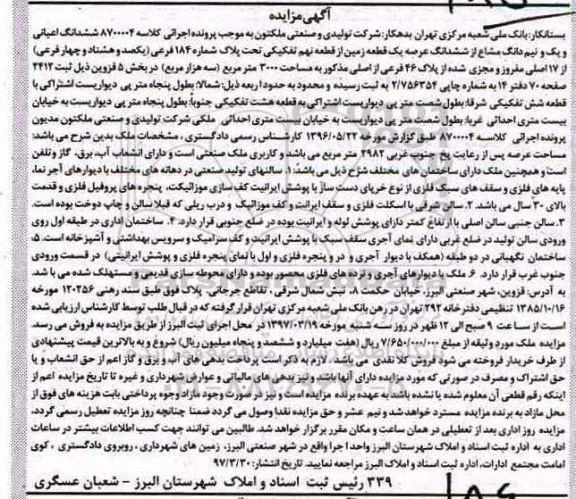 آگهی مزایده
بستانکار: بانک ملی شعبه مرکزی تهران بدهکار: شرکت تولیدی و صنعتی ملکتون به موجب پرونده اجرائی کلاسه ۸۷۰۰۰۰۴ ششدانگ اعیانی
و یک و نیم دانگ مشاع از ششدانگ عرصه یک قطعه زمین از قطعه نهم تفکیکی تحت پلاک شماره ۱۸۴ فرعی (یکصد و هشتاد و چهار فرعی)
از ۱۷ اصلی مفروز و مجزی شده از پلاک ۴۶ فرعی از اصلی مذکور به مساحت ۳۰۰۰ متر مربع (سه هزار مربع) در بخش ۵ قزوین ذیل ثبت ۲۴۱۲
صفحه ۷۰ دفتر ۱۴ به شماره چاپی ۲/۷۵۶۳۵۴ به ثبت رسیده و محدود به حدود اربعه ذیل: شمالا: بطول پنجاه متر پی دیواریست اشتراکی با
قطعه شش تفکیکی شرقا: بطول شصت متر پی دیواریست اشتراکی به قطعه هشت تفکیکی جنوباً: بطول پنجاه متر پی دیواریست به خیابان
بیست متری احداثی غربا: بطول شصت متر پی دیواریست به خیابان بیست متری احداثی ملکی شرکت تولیدی و صنعتی ملکتون مدیون
پرونده اجرائی کلاسه ۸۷۰۰۰۰۴ طبق گزارش مورخه ۱۳۹۶/۰۵/۲۲ کارشناس رسمی دادگستری، مشخصات ملک بدین شرح می باشد:
مساحت عرصه پس از رعایت پخ جنوب غربی ۲۹۸۲ متر مربع می باشد و کاربری ملک صنعتی است و دارای انشعاب آب، برق، گاز و تلفن
است و همچنین ملک دارای ساختمان های مختلف بشرح ذیل می باشد: ۱. سالنهای تولید صنعتی در دهانه های مختلف با دیوارهای آجر نما،
پایه های فلزی و سقف های سبک فلزی از نوع خرپای دست ساز با پوشش ایرانیت کف سازی موزائیکت، پنجره های پروفیل فلزی و قدمت
بالای ۳۰ سال می باشد. ۲. سالن شرقی با اسکلت فلزی و سقف ایرانت و کف موزائیک و درب ریلی که قبلا سالن و چاپ دوخت بوده است.
۳. سالن جنبی سالن اصلی با ارتفاع کمتر دارای پوشش لوله و ایرانیت بوده در ضلع جنوبی قرار دارد. ۴. ساختمان اداری در طبقه اول روی
ورودی سالن تولید در ضلع غربی دارای نمای آجری سقف سبک با پوشش ایرانیت و کف سرامیک و سرویس بهداشتی و آشپزخانه است. ۵.
ساختمان نگهبانی در دو طبقه (همکف با دیوار آجری و در و پنجره فلزی و اول با نمای پنجره فلزی و پوشش ایرانیتی) در قسمت ورودی
جنوب غرب قرار دارد. ۶. ملک با دیوارهای آجری و نرده های فلزی محصور بوده و دارای محوطه سازی قدیمی مستهلک شده می باشد
به آدرس: قزوین، شهر صنعتی البرز، خیابان حکمت ۸، نبش شمال شرقی، تقاطع جرجانی. پلاک فوق طبق سند رهنی ۱۲۰۲۵۶ مورخه
۱۳۸۵/۱۰/۱۶ تنظیمی دفترخانه ۲۹۲ تهران در رهن بانک ملی شعبه مرکزی تهران قرار گرفته که در قبال طلب توسط کارشناس ارزیابی شده
است از ساعت ۹ صبح الی ۱۲ ظهر در روز سه شنبه مورخه ۱۳۹۷/۰۳/۱۹ در محل اجرای ثبت البرز از طریق مزایده به فروش می رسد.
مزایده ملک مورد وثیقه از مبلغ ۷/۶۵۰/۰۰۰/۰۰۰ ریال (هفت میلیارد و ششصد و پنجاه میلیون ریال) شروع و به بالاترین قیمت پیشنهادی
از طرف خریدار فروخته می شود فروش کلا نقدی می باشد. لازم به ذکر است پرداخت بدهی های آب و برق و گاز اعم از حق انشعاب و یا
حق اشتراک و مصرف در صورتی که مورد مزایده دارای آنها باشد و نیز بدهی های مالیاتی و عوارض شهرداری و غیره تا تاریخ مزایده اعم از
اینکه رقم قطعی آن معلوم شده یا نشده باشد به عهده برنده مزایده است و نیز در صورت وجود مازاد وجوه پرداختی بابت هزینه های فوق از
محل مازاد به برنده مزایده مسترد خواهد شد و نیم عشر و حق مزایده نقدا وصول می گردد ضمنا چنانچه روز مزایده تعطیل رسمی گردد،
مزایده روز اداری بعد از تعطیلی در همان ساعت و مکان مقرر برگزار خواهد شد. طالبین می توانند جهت کسب اطلاعات بیشتر در ساعات
اداری به اداره ثبت اسناد و املاک شهرستان البرز واحد اجرا واقع در شهر صنعتی البرز، زمین های شهرداری، روبروی دادگستری، کوی
امامت مجتمع ادارات، اداره ثبت اسناد و املاک البرز مراجعه نمایید. تاریخ انتشار: ۹۷/۳/۳۰
۳۳۹ رئیس ثبت اسناد و املاک شهرستان البرز – شعبان عسگری